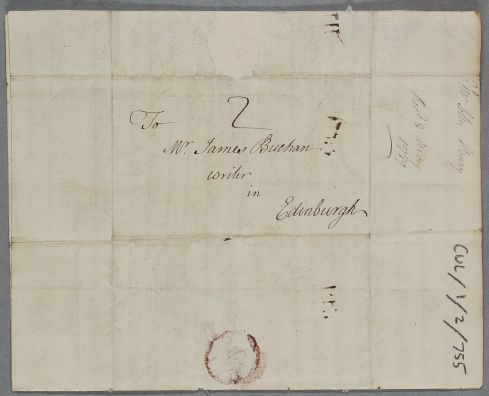 2
To
Mr. James Buchan
writer
in
Edinburgh
Mr John
1769
CUL/1/2/755